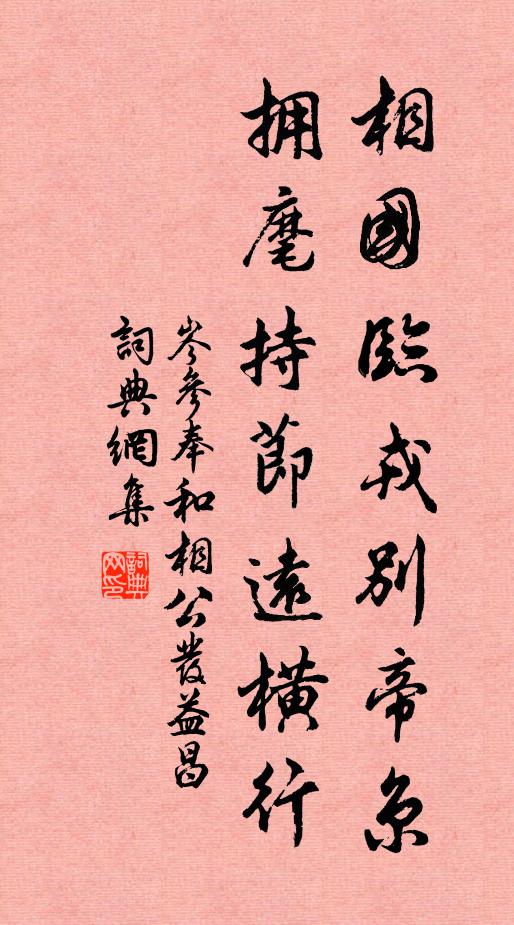 相國臨戎別帝京
擁麾持節遠橫行
岑參奉和相公發益昌
詞典網集
詞典網印